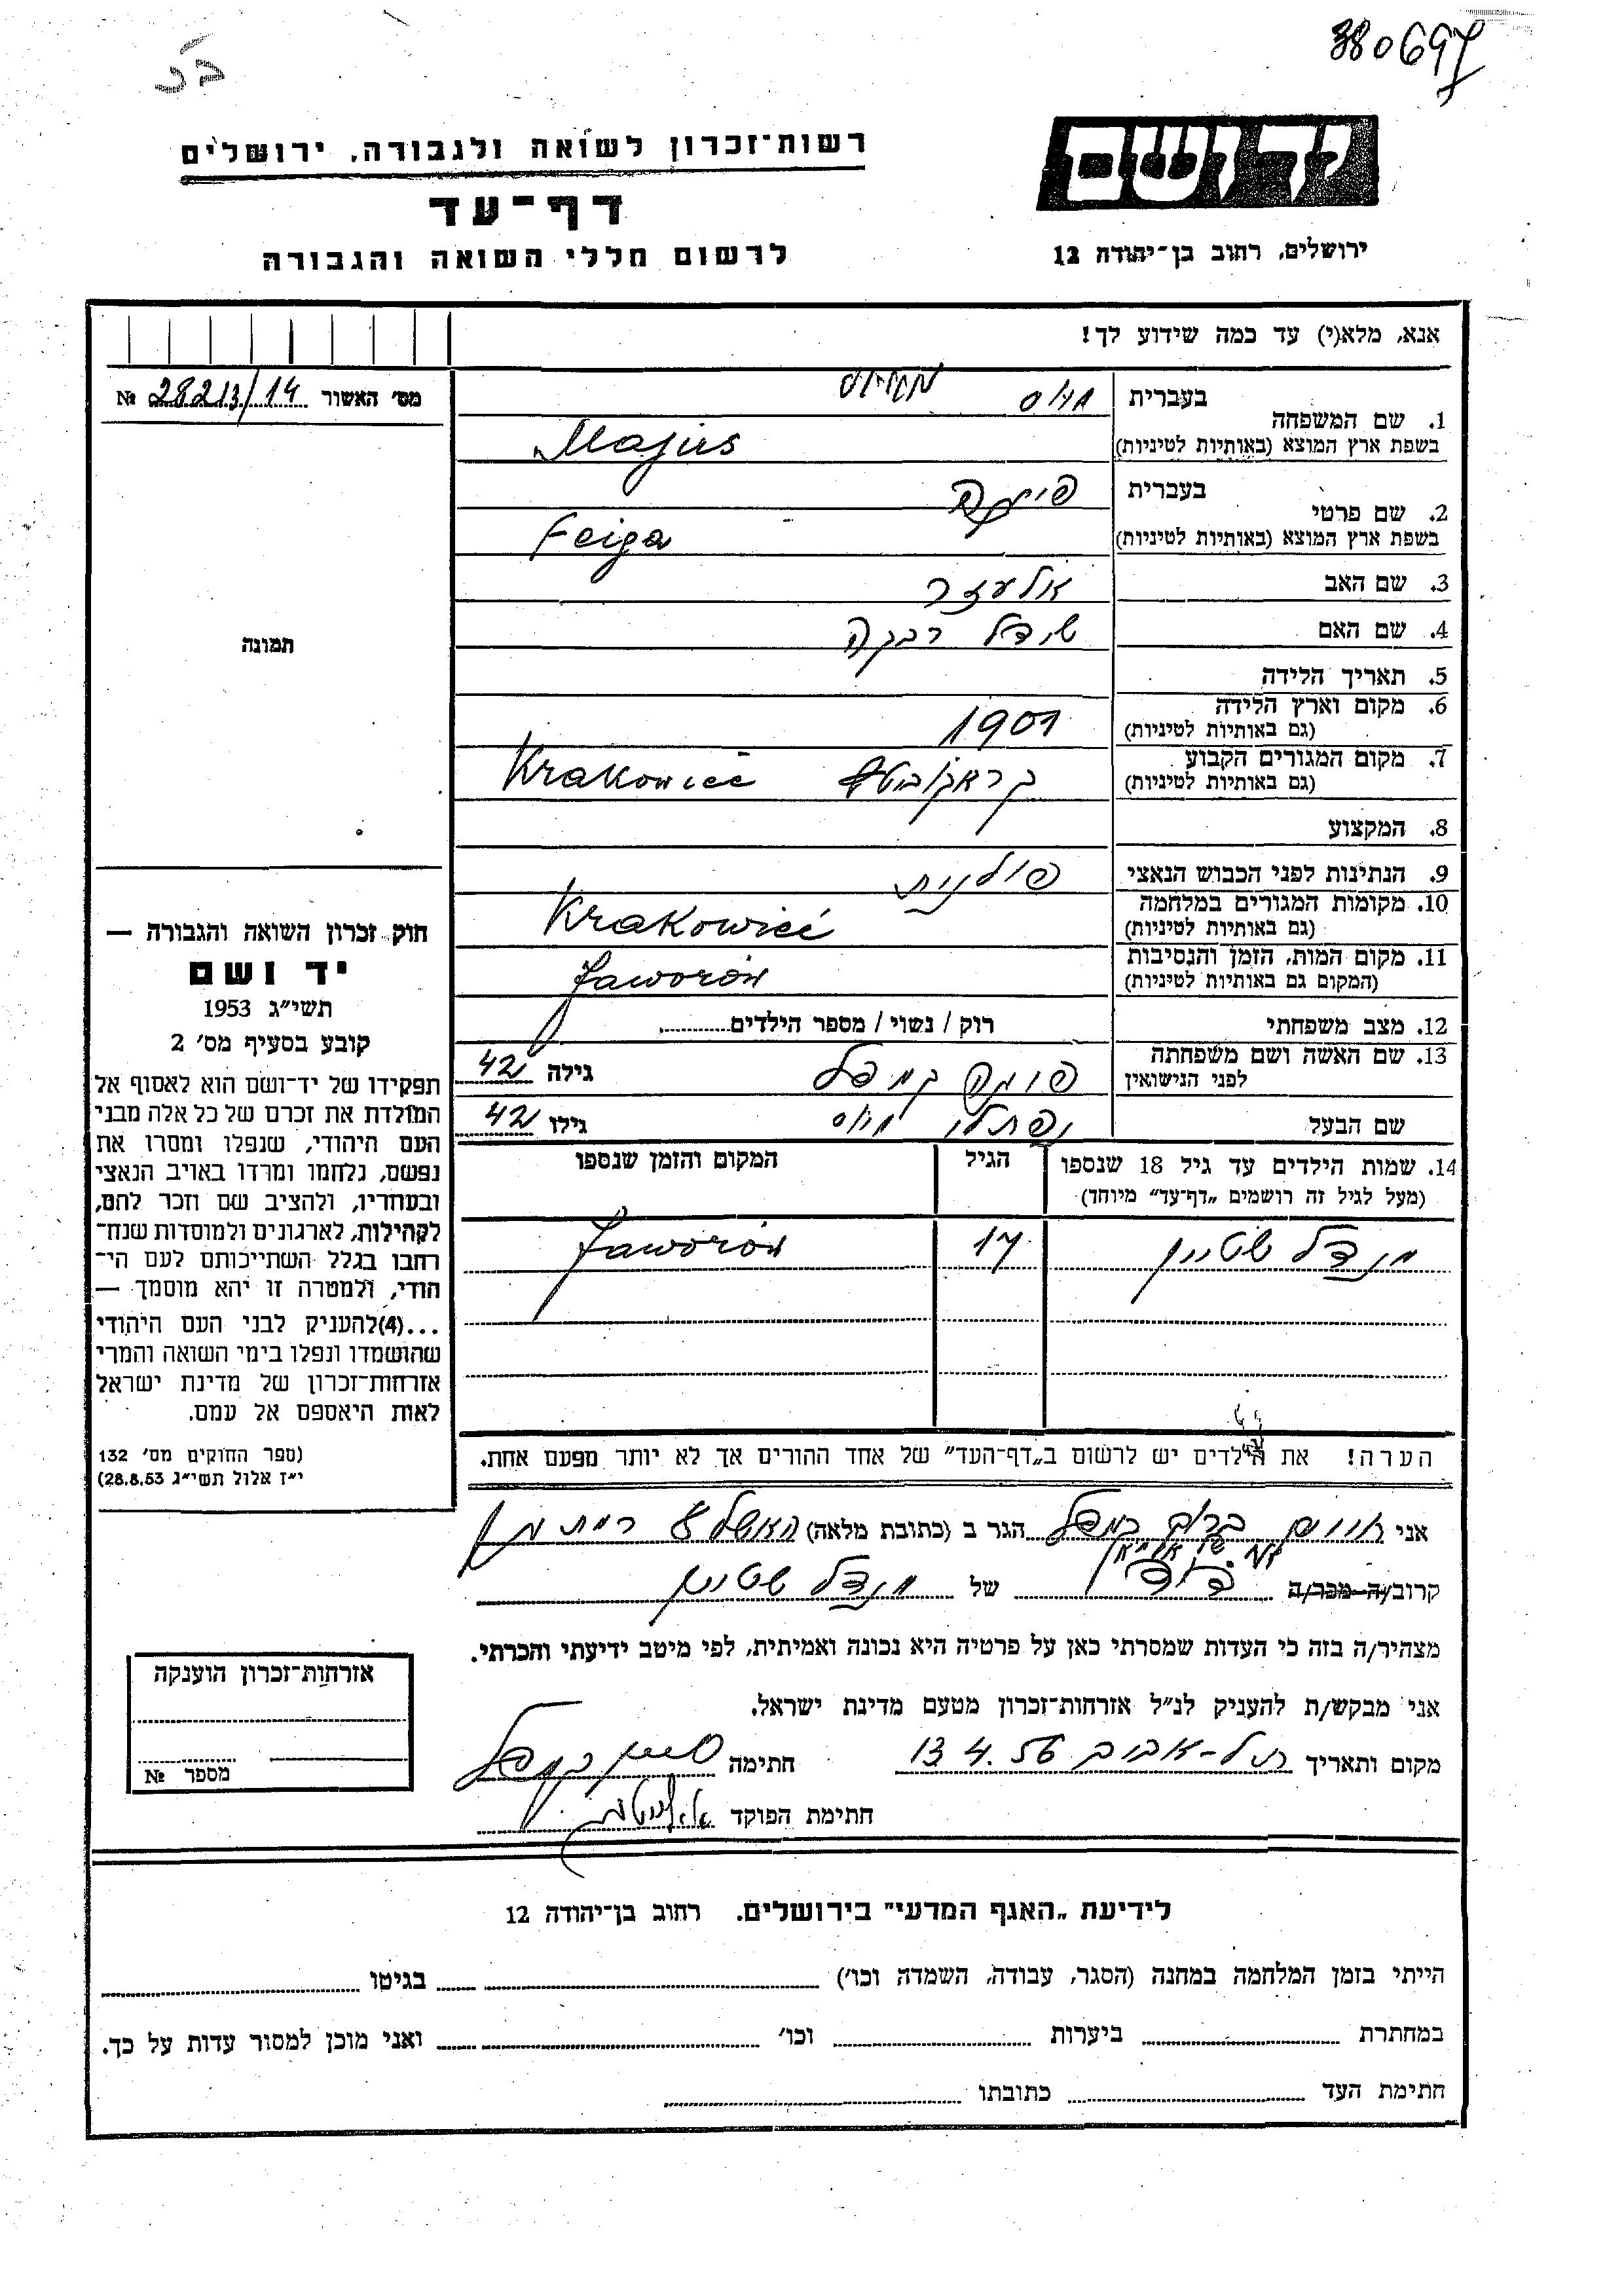 380697
רשות־זכרון לשואה ולגבורה, ירושלים
יד ושם
דף־עד
לרשום חללי השואה והגבורה
ירושלים, רחוב בן־יהודה 12
אנא, מלא(י) עד כמה שידוע לך!
מס׳ האשור 28213/14 №
1. שם המשפחה
בעברית
בשפת ארץ המוצא (באותיות לטיניות) Majus
2. שם פרטי
בעברית פייגה
בשפת ארץ המוצא (באותיות לטיניות) Feiga
3. שם האב אלעזר
4. שם האם רבקה
5. תאריך הלידה
6. מקום וארץ הלידה
(גם באותיות לטיניות) 1901
7. מקום המגורים הקבוע
(גם באותיות לטיניות) Krakowieć
8. המקצוע
9. הנתינות לפני הכבוש הנאצי פולנית
10. מקומות המגורים במלחמה
(גם באותיות לטיניות) Krakowieć
11. מקום המות, הזמן והנסיבות
(המקום גם באותיות לטיניות) Jaworów
12. מצב משפחתי רוק / נשוי / מספר הילדים
13. שם האשה ושם משפחתה
לפני הנישואין פייגה קמפל גילה 42
שם הבעל נפתלי גילו 42
14. שמות הילדים עד גיל 18 שנספו
(מעל לגיל זה רושמים „דף־עד״ מיוחד)
הגיל
המקום והזמן שנספו
מנדל שטיין 17 Jaworów
הערה! את הילדים יש לרשום ב„דף־העד״ של אחד ההורים אך לא יותר מפעם אחת.
אני קמפל הגר ב (כתובת מלאה)
קרוב/ה מכר/ה של מנדל שטיין
מצהיר/ה בזה כי העדות שמסרתי כאן על פרטיה היא נכונה ואמיתית, לפי מיטב ידיעתי והכרתי.
אני מבקש/ת להעניק לנ״ל אזרחות־זכרון מטעם מדינת ישראל.
מקום ותאריך תל-אביב 13.4.56 חתימה קמפל
חתימת הפוקד
תמונה
חוק זכרון השואה והגבורה —
יד ושם
תשי״ג 1953
קובע בסעיף מס׳ 2
תפקידו של יד־ושם הוא לאסוף אל
המולדת את זכרם של כל אלה מבני
העם היהודי, שנפלו ומסרו את
נפשם, נלחמו ומרדו באויב הנאצי
ובעוזריו, ולהציב שם וזכר להם,
לקהילות, לארגונים ולמוסדות שנח־
רבו בגלל השתייכותם לעם הי־
הודי, ולמטרה זו יהא מוסמך —
...(4)להעניק לבני העם היהודי
שהושמדו ונפלו בימי השואה והמרי
אזרחות־זכרון של מדינת ישראל
לאות היאספם אל עמם.
(ספר החוקים מס׳ 132
י״ז אלול תשי״ג 28.8.53)
אזרחות־זכרון הוענקה
מספר №
לידיעת „האגף המדעי״ בירושלים. רחוב בן־יהודה 12
הייתי בזמן המלחמה במחנה (הסגר, עבודה, השמדה וכו׳) בגיטו
במחתרת ביערות וכו׳ ואני מוכן למסור עדות על כך.
חתימת העד כתובתו